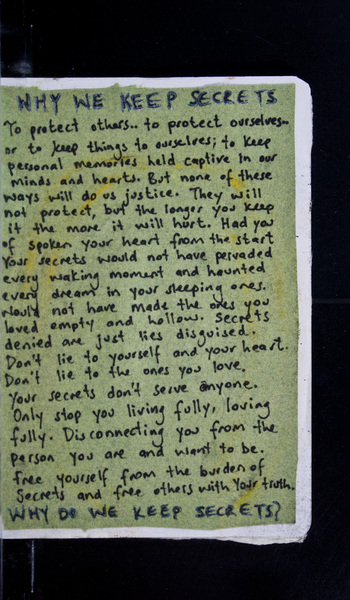 WHY WE KEEP SECRETS
To protect others.. to protect ourselves..
or to keep things to ourselves; to keep
personal memories held captive in our
minds and hearts. But none of these
ways will do us justice. They will
not protect, but the longer you keep
it the more it will hurt. Had you
of spoken your heart from the start
Your secrets would not have pervaded
every waking moment and haunted
every dream in your sleeping ones.
Would not have made the ones you
loved empty and hollow. Secrets
denied are just lies disguised.
Don't lie to yourself and your heart.
Don't lie to the ones you love.
Your secrets don't serve anyone.
Only stop you living fully, loving
fully. Disconnecting you from the
person you are and want to be.
Free yourself from the burden of
Secrets and free others with Your truth.
WHY DO WE KEEP SECRETS?